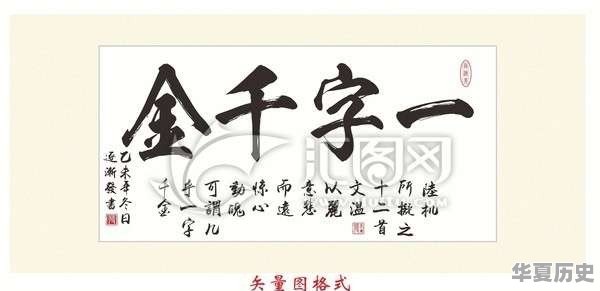 一字千金
陸机
所擬之
十二首
文溫
以麗
意悲
而遠
惊心
動魄
可謂几
乎一字
千金
乙未年冬日
漸發書
汇图网
矢量图格式
华夏历史